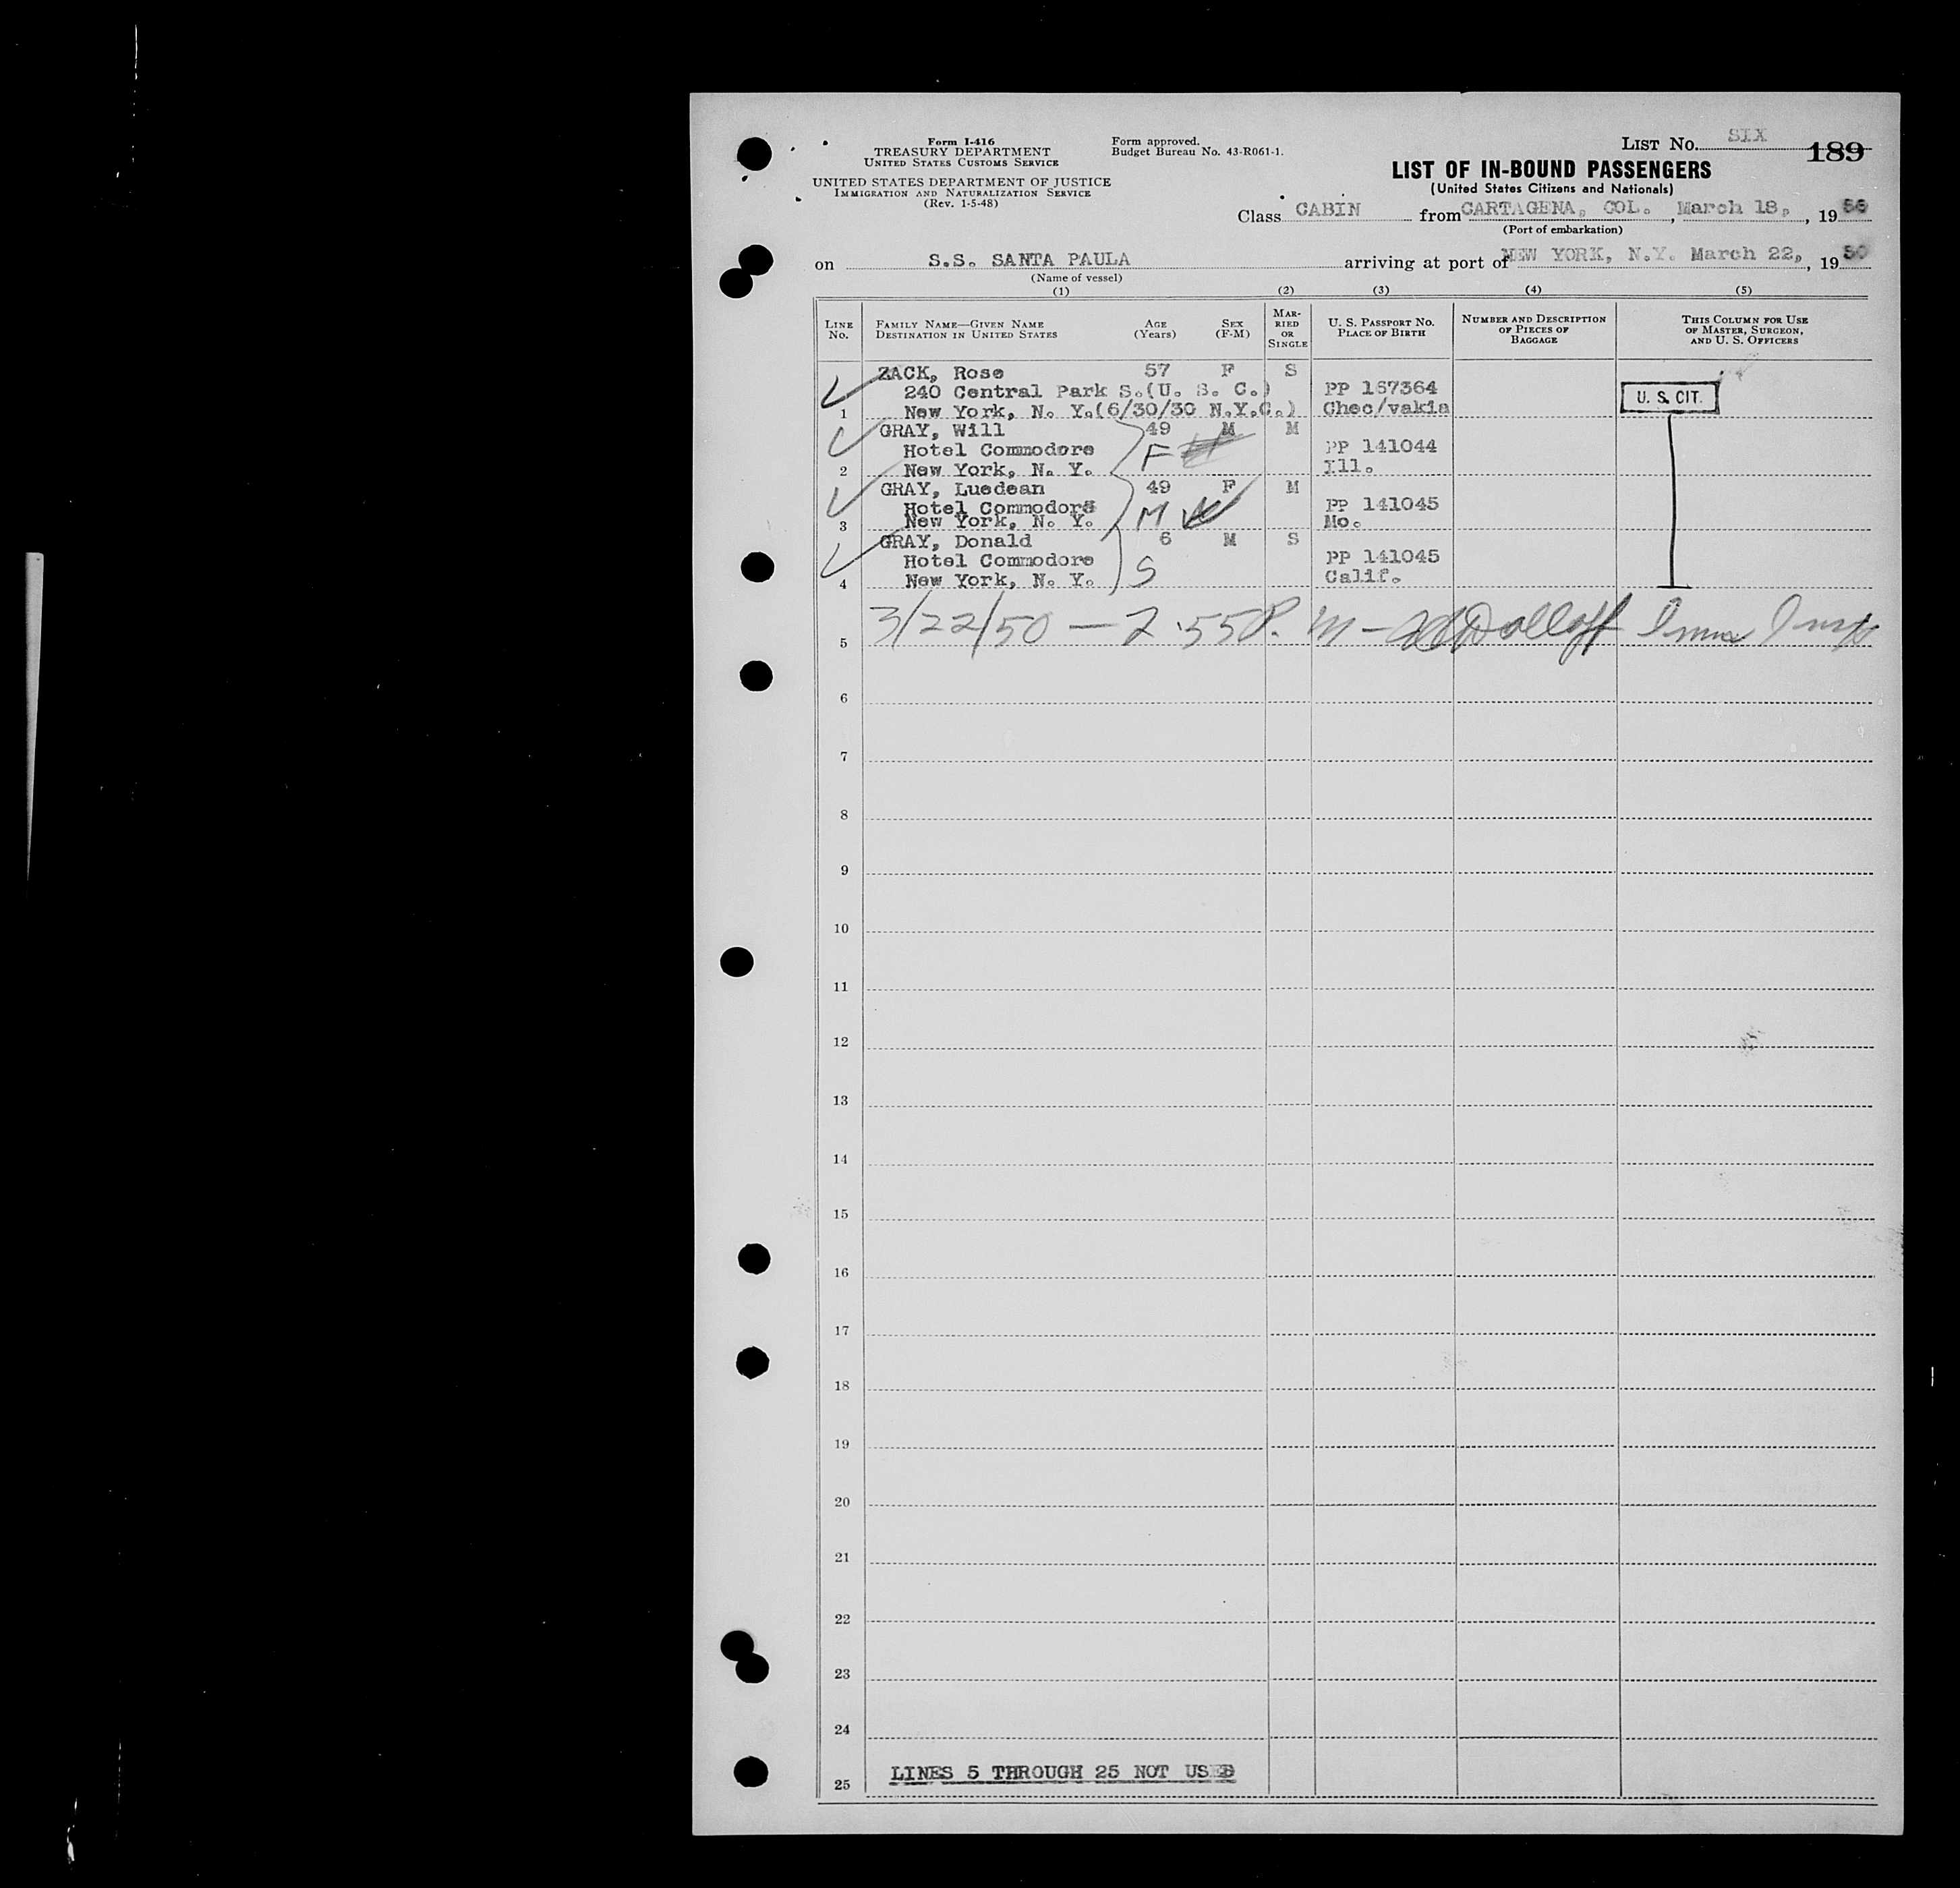 Form I-416
TREASURY DEPARTMENT
UNITED STATES CUSTOMS SERVICE
UNITED STATES DEPARTMENT OF JUSTICE
IMMIGRATION AND NATURALIZATION SERVICE
(Rev. 1-5-48)
Form approved.
Budget Bureau No. 43-R061-1.
LIST No. SIX
189
LIST OF IN-BOUND PASSENGERS
(United States Citizens and Nationals)
Class CABIN from CARTAGENA, COL., March 18, , 19
(Port of embarkation)
on S.S. SANTA PAULA arriving at port of NEW YORK, N.Y. March 22, , 1950
(Name of vessel)
(1) (2) (3) (4) (5)
LINE NO. FAMILY NAME—GIVEN NAME DESTINATION IN UNITED STATES AGE (Years) SEX (F-M) MARRIED OR SINGLE U. S. PASSPORT NO. PLACE OF BIRTH NUMBER AND DESCRIPTION OF PIECES OF BAGGAGE THIS COLUMN FOR USE OF MASTER, SURGEON, AND U. S. OFFICERS
ZACK, Rose 57 F S
240 Central Park S.(U. S. C.) PP 167364
1 New York, N. Y.(6/30/30 N.Y.C.) Chec/vakia U. S. CIT.
GRAY, Will 49 M M
Hotel Commodore F PP 141044
2 New York, N. Y. Ill.
GRAY, Luedean 49 F M
Hotel Commodore M PP 141045
3 New York, N. Y. Mo.
GRAY, Donald 6 M S
Hotel Commodore S PP 141045
4 New York, N. Y. Calif.
5 3/22/50 — 2.55 P.M — Dolloff Imm Insp
6
7
8
9
10
11
12
13
14
15
16
17
18
19
20
21
22
23
24
25 LINES 5 THROUGH 25 NOT USED